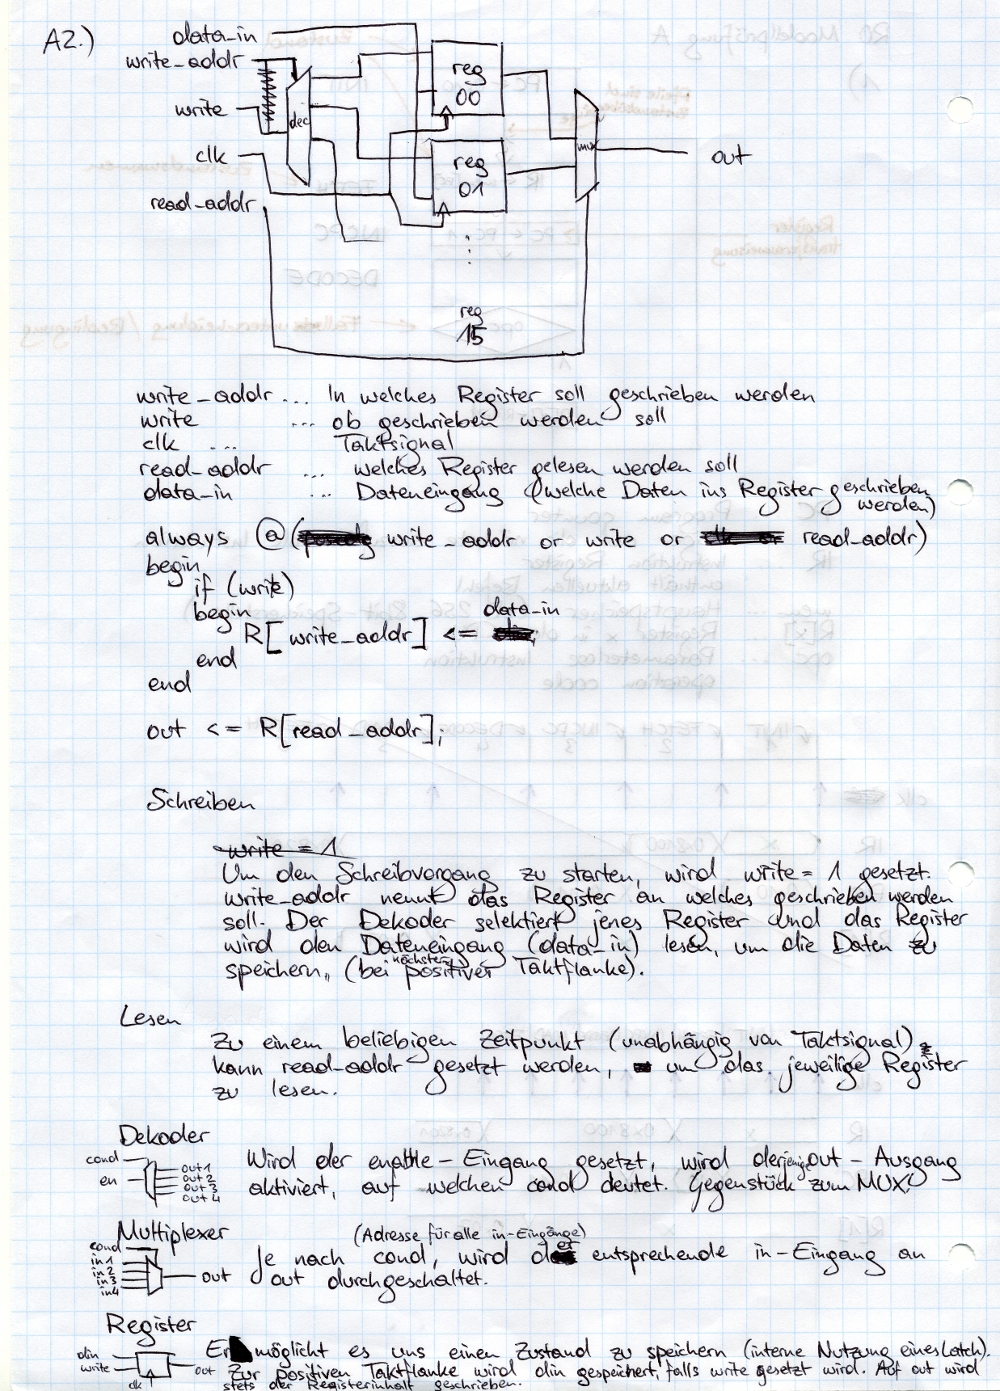 A2.)
data_in
write_addr
write
clk
read_addr
dec
reg
00
reg
01
reg
15
mux
out
write_addr ... In welches Register soll geschrieben werden
write ... ob geschrieben werden soll
clk ... Taktsignal
read_addr ... welches Register gelesen werden soll
data_in ... Dateneingang (welche Daten ins Register geschrieben
werden)
always @( write_addr or write or read_addr)
begin
if (write)
begin
data_in
R[write_addr] <=
end
end
out <= R[read_addr];
Schreiben
write = 1
Um den Schreibvorgang zu starten, wird write = 1 gesetzt.
write_addr nennt das Register an welches geschrieben werden
soll. Der Dekoder selektiert jenes Register und das Register
wird den Dateneingang (data_in) lesen, um die Daten zu
speichern, (bei nächster positiver Taktflanke).
Lesen
Zu einem beliebigen Zeitpunkt (unabhängig von Taktsignal)
kann read-addr gesetzt werden, um das jeweilige Register
zu lesen.
Dekoder
cond
en
out1
out2
out3
out4
Wird der enable-Eingang gesetzt, wird derjenige out-Ausgang
aktiviert, auf welchen cond deutet. Gegenstück zum MUX.
Multiplexer
cond
in1
in2
in3
in4
out
(Adresse für alle in-Eingänge)
Je nach cond, wird der entsprechende in-Eingang an
out durchgeschaltet.
Register
din
write
clk
out
Ermöglicht es uns einen Zustand zu speichern (interne Nutzung eines Latch).
Zur positiven Taktflanke wird din gespeichert, falls write gesetzt wird. Auf out wird
stets der Registerinhalt geschrieben.